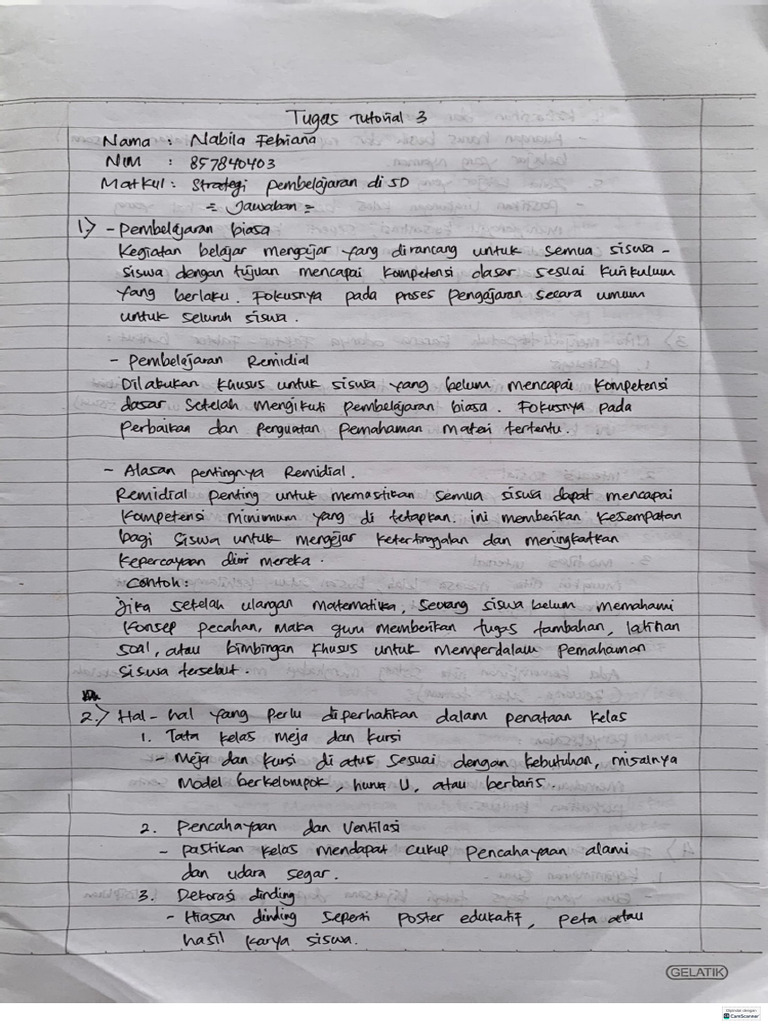 Tugas Tutorial 3
Nama : Nabila Febriana
NIM : 857840403
Matkul : Strategi pembelajaran di SD
= Jawaban =
1.) - Pembelajaran biasa
Kegiatan belajar mengajar yang dirancang untuk semua siswa -
siswa dengan tujuan mencapai kompetensi dasar sesuai kurikulum
yang berlaku. Fokusnya pada proses pengajaran secara umum
untuk seluruh siswa.
- Pembelajaran Remidial
Dilakukan khusus untuk siswa yang belum mencapai kompetensi
dasar setelah mengikuti pembelajaran biasa. Fokusnya pada
perbaikan dan penguatan pemahaman materi tertentu.
- Alasan pentingnya Remidial.
Remidial penting untuk memastikan semua siswa dapat mencapai
kompetensi minimum yang di tetapkan. ini memberikan kesempatan
bagi siswa untuk mengejar ketertinggalan dan meningkatkan
kepercayaan diri mereka.
Contoh :
Jika setelah ulangan matematika, seorang siswa belum memahami
konsep pecahan, maka guru memberikan tugas tambahan, latihan
soal, atau bimbingan khusus untuk memperdalam pemahaman
siswa tersebut.
2.) Hal-hal yang perlu diperhatikan dalam penataan kelas
1. Tata kelas meja dan kursi
- Meja dan kursi di atus sesuai dengan kebutuhan, misalnya
model berkelompok, huruf U, atau berbaris.
2. Pencahayaan dan ventilasi
- pastikan kelas mendapat cukup pencahayaan alami
dan udara segar.
3. Dekorasi dinding
- Hiasan dinding seperti poster edukatif, peta atau
hasil karya siswa.
GELATIK
Dipindai dengan
CamScanner